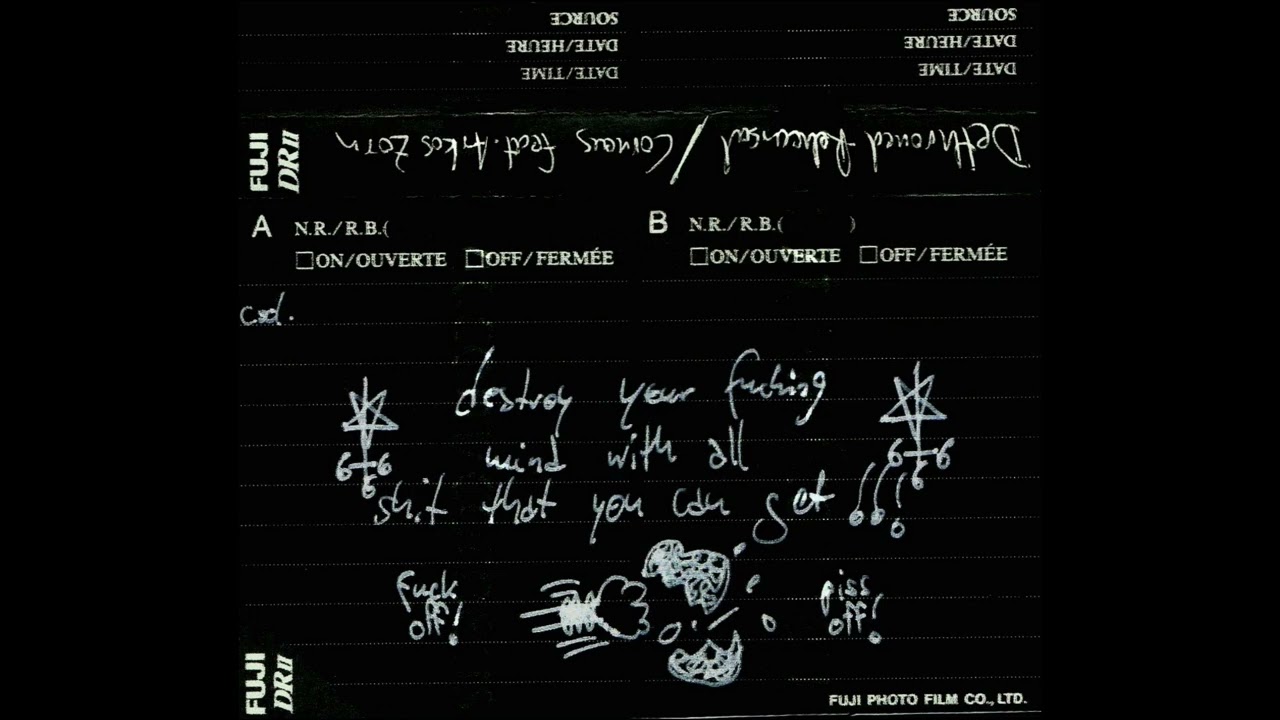 SOURCE SOURCE
DATE/HEURE DATE/HEURE
DATE/TIME DATE/TIME
FUJI DR II
Dethroned Rehearsal / feat. Arkos Zorn
A N.R./R.B.( B N.R./R.B.( )
□ON/OUVERTE □OFF/FERMÉE □ON/OUVERTE □OFF/FERMÉE
destroy your fucking
mind with all
6 6 6 6
6 6
shit that you can get !!!
fuck piss
off! off!
FUJI DR II
FUJI PHOTO FILM CO., LTD.